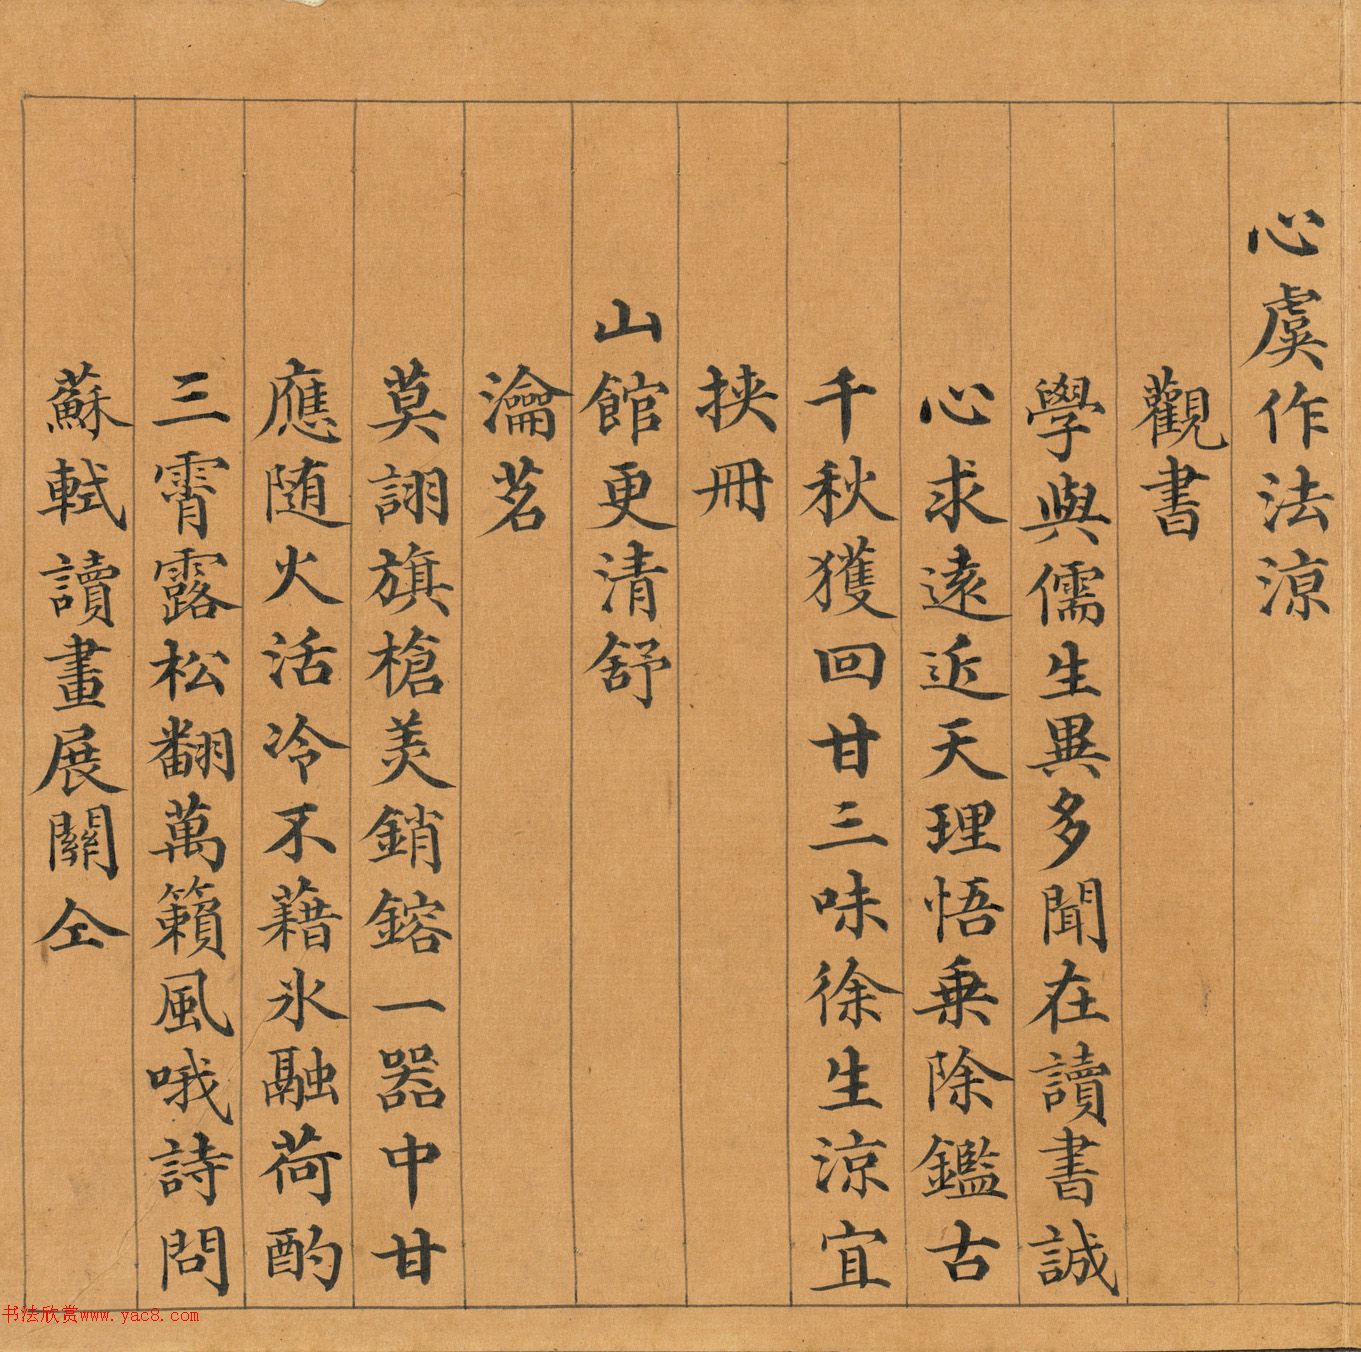 心虞作法涼
觀書
學與儒生異多聞在讀書誠
心求遠近天理悟乗除鑑古
千秋獲回甘三味徐生涼宜
挟冊
山館更清舒
瀹茗
莫詡旗槍美銷鎔一器中甘
應随火活冷不藉氷融荷酌
三霄露松翻萬籟風哦詩問
蘇軾讀畫展關仝
书法欣赏www.yac8.com